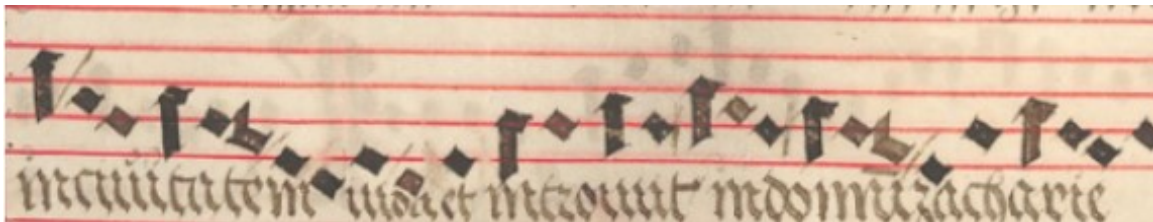 in ciuitatem iuda et intrauit in domū zacharie